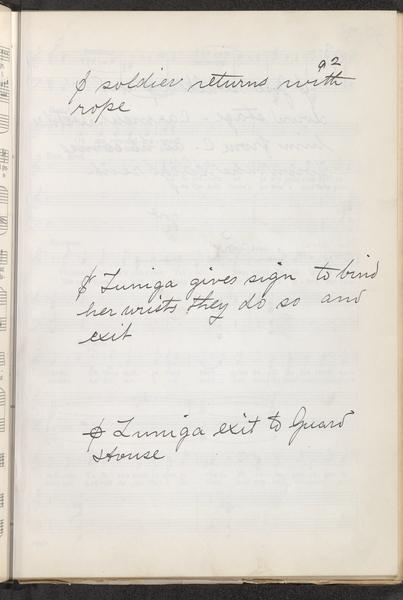 92
₵ soldier returns with
rope
₵ Zuniga gives sign to bind
her wrists they do so and
exit
₵ Zuniga exit to Guard
House